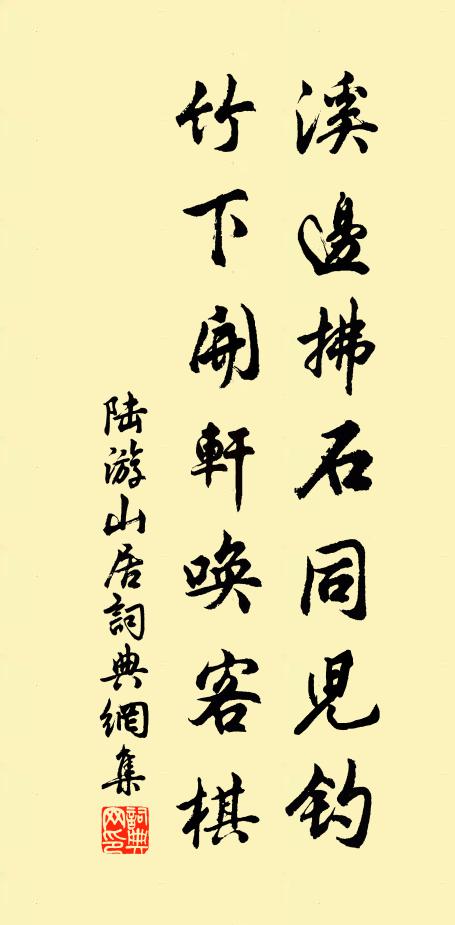 溪邊拂石同兒釣
竹下開軒喚客棋
陆游山居詞典網集
詞典網印